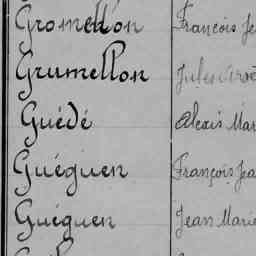 Gromellon François Je
Grumellon Jules
Guédé Alexis Mar
Guéguen François Jea
Guéguen Jean Marie